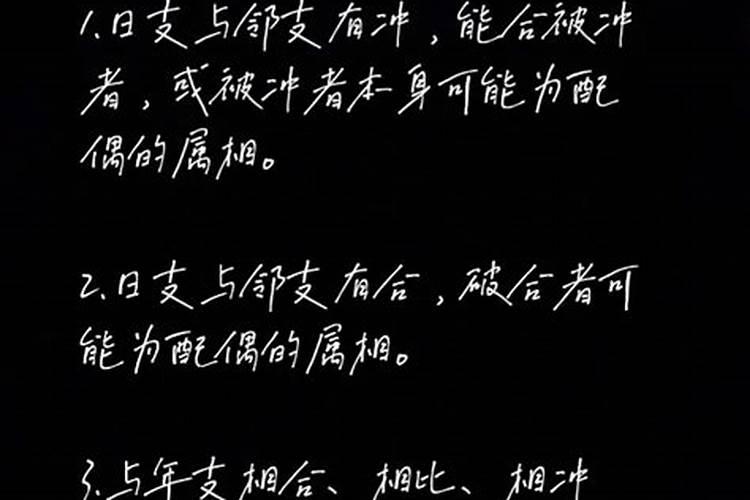 1.日支与邻支有冲，能合被冲
者，或被冲者本身可能为配
偶的属相。
2.日支与邻支有合，破合者可
能为配偶的属相。
3.与年支相合、相比、相冲